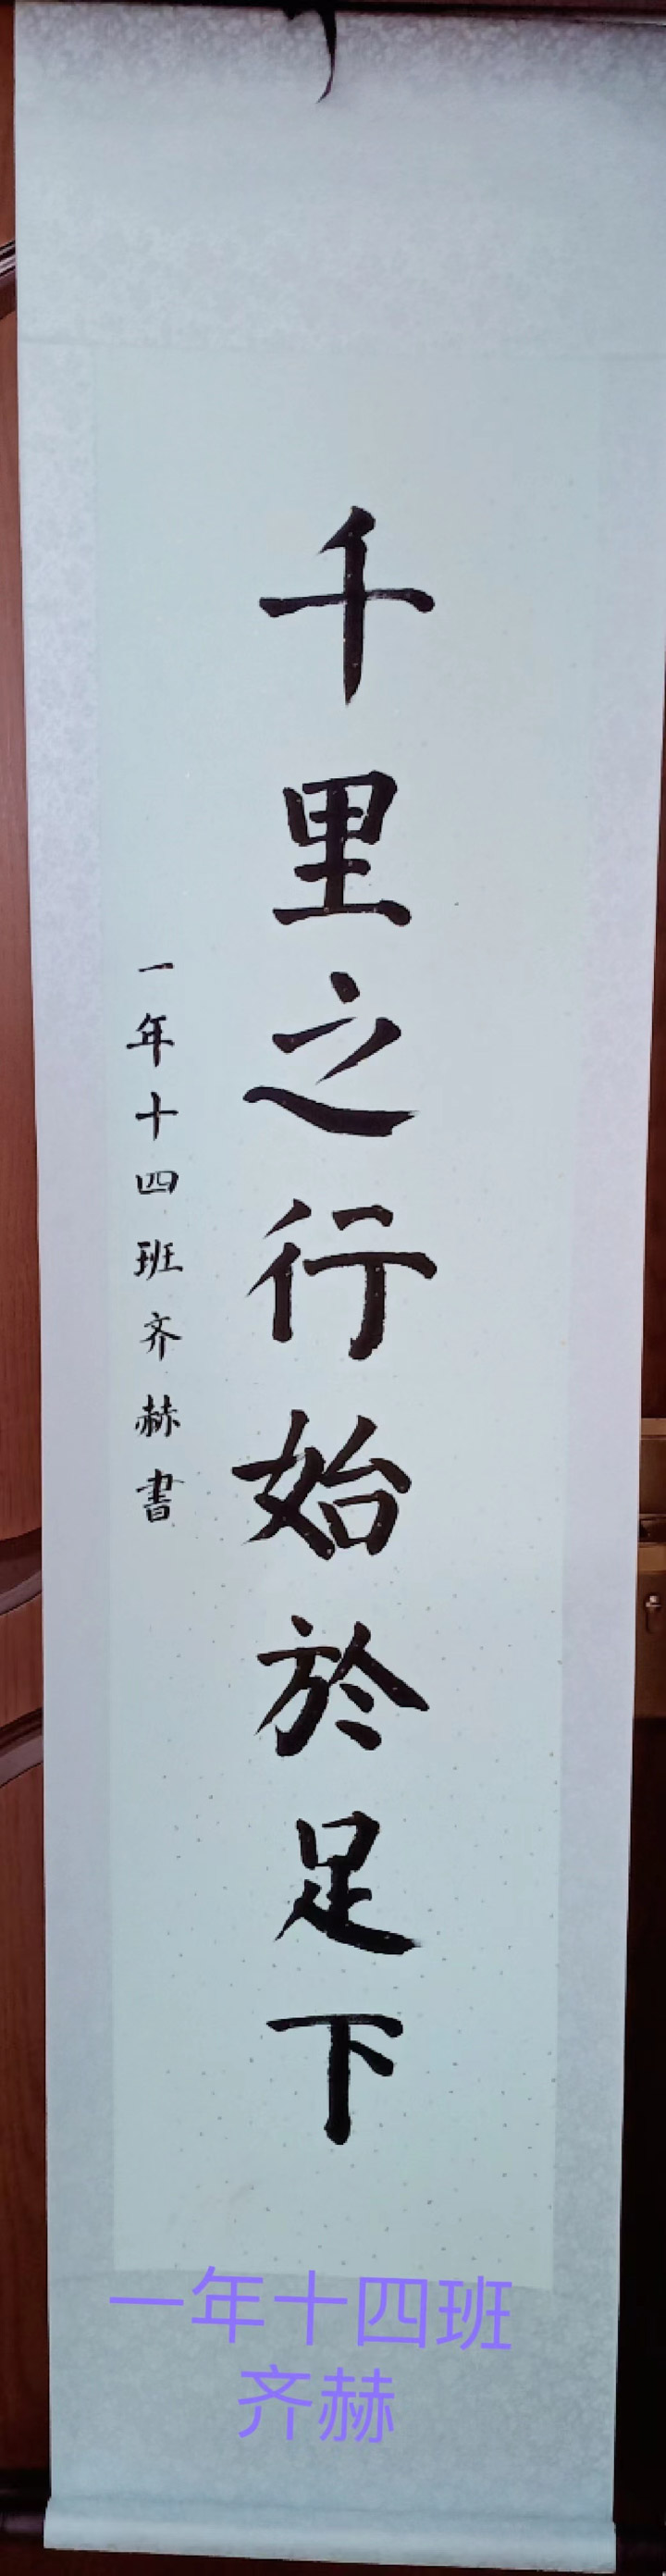 千里之行始於足下
一年十四班齐赫書
一年十四班
齐赫